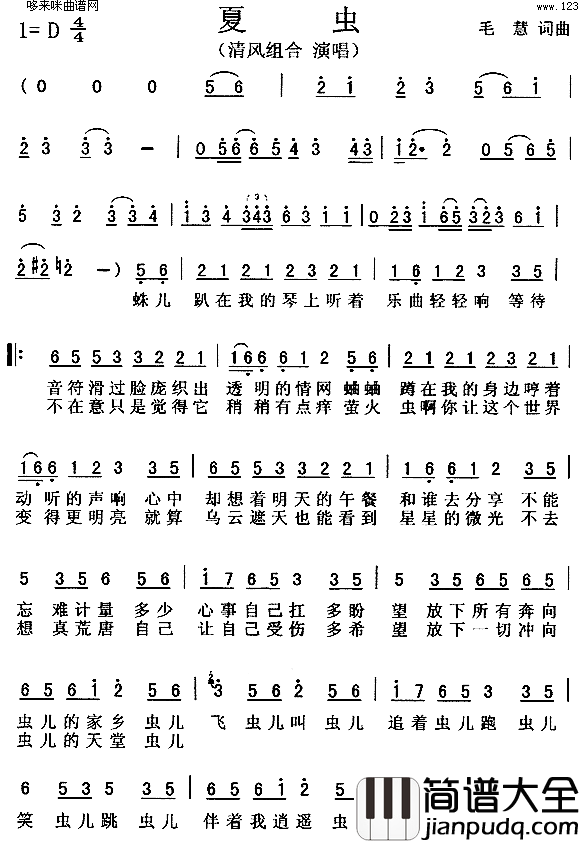 哆来咪曲谱网
www.123
夏 虫
1= D 4/4
毛 慧 词曲
（清风组合 演唱）
(0 0 0 5 6 | 2 1 2 3 5 6 |
2 3 3 3 — | 0 5 6 6 5 4 3 4 3 | 1 2· 2 0 5 6 5 |
5 3 2 3 3 4 | 1 3 4 3 4 3 6 3 1 1 | 0 2 3 1 6 5 3 2 3 6 1 |
2 #2 ♮2 —) 5 6 | 2 1 2 1 1 2 3 2 1 | 1 2 1 6 1 2 3 3 5 |
蛛儿 趴在我的琴上听着 乐曲轻轻响 等待
6 5 5 3 3 2 2 1 | 1 6 6 6 1 2 5 6 | 2 1 2 1 1 2 3 2 1 |
音符滑过脸庞织出 透明的情网 蛐蛐 蹲在我的身边哼着
不在意只是觉得它 稍稍有点痒 萤火 虫啊你让这个世界
1 6 6 1 2 3 3 5 | 6 5 5 3 3 2 2 1 | 1 6 6 1 2 3 3 5 |
动听的声响 心中 却想着明天的午餐 和谁去分享 不能
变得更明亮 就算 乌云遮天也能看到 星星的微光 不去
5 3 5 6 5 6 | 1 7 6 5 3 3 5 | 5 3 5 6 5 6 5 |
忘 难计量 多少 心事自己扛 多盼 望 放下所有奔向
想 真荒唐 自己 让自己受伤 多希 望 放下一切冲向
6 5 6 1 2 5 6 | 3 5 6 5 5 6 | 1 7 6 5 3 5 6 |
虫儿的家乡 虫儿 飞 虫儿叫 虫儿 追着虫儿跑 虫儿
虫儿的天堂 虫儿
6 5 3 5 3 5 | 6 5 6 1 2
笑 虫儿跳 虫儿 伴着我逍遥 虫
简谱大全
jianpudq.com